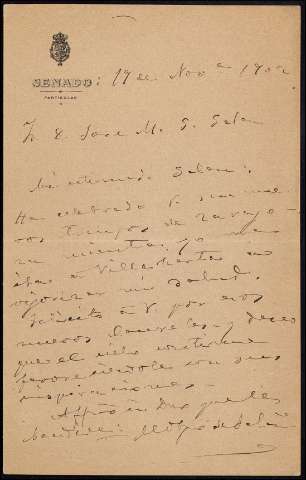 SENADO: 17 de Nove 1902
PARTICULAR
Sr D. Jose M. G. Galan
Mi estimado Galan:
Ha celebrado V. sus nue
vos triunfos de Zarago
za mientras yo me
iba a Villa
mejorar mi salud.
Felicito á V. por esos
nuevos laureles y deseo
que el cielo continue
favoreciendole con sus
inspiraciones.
Affmo